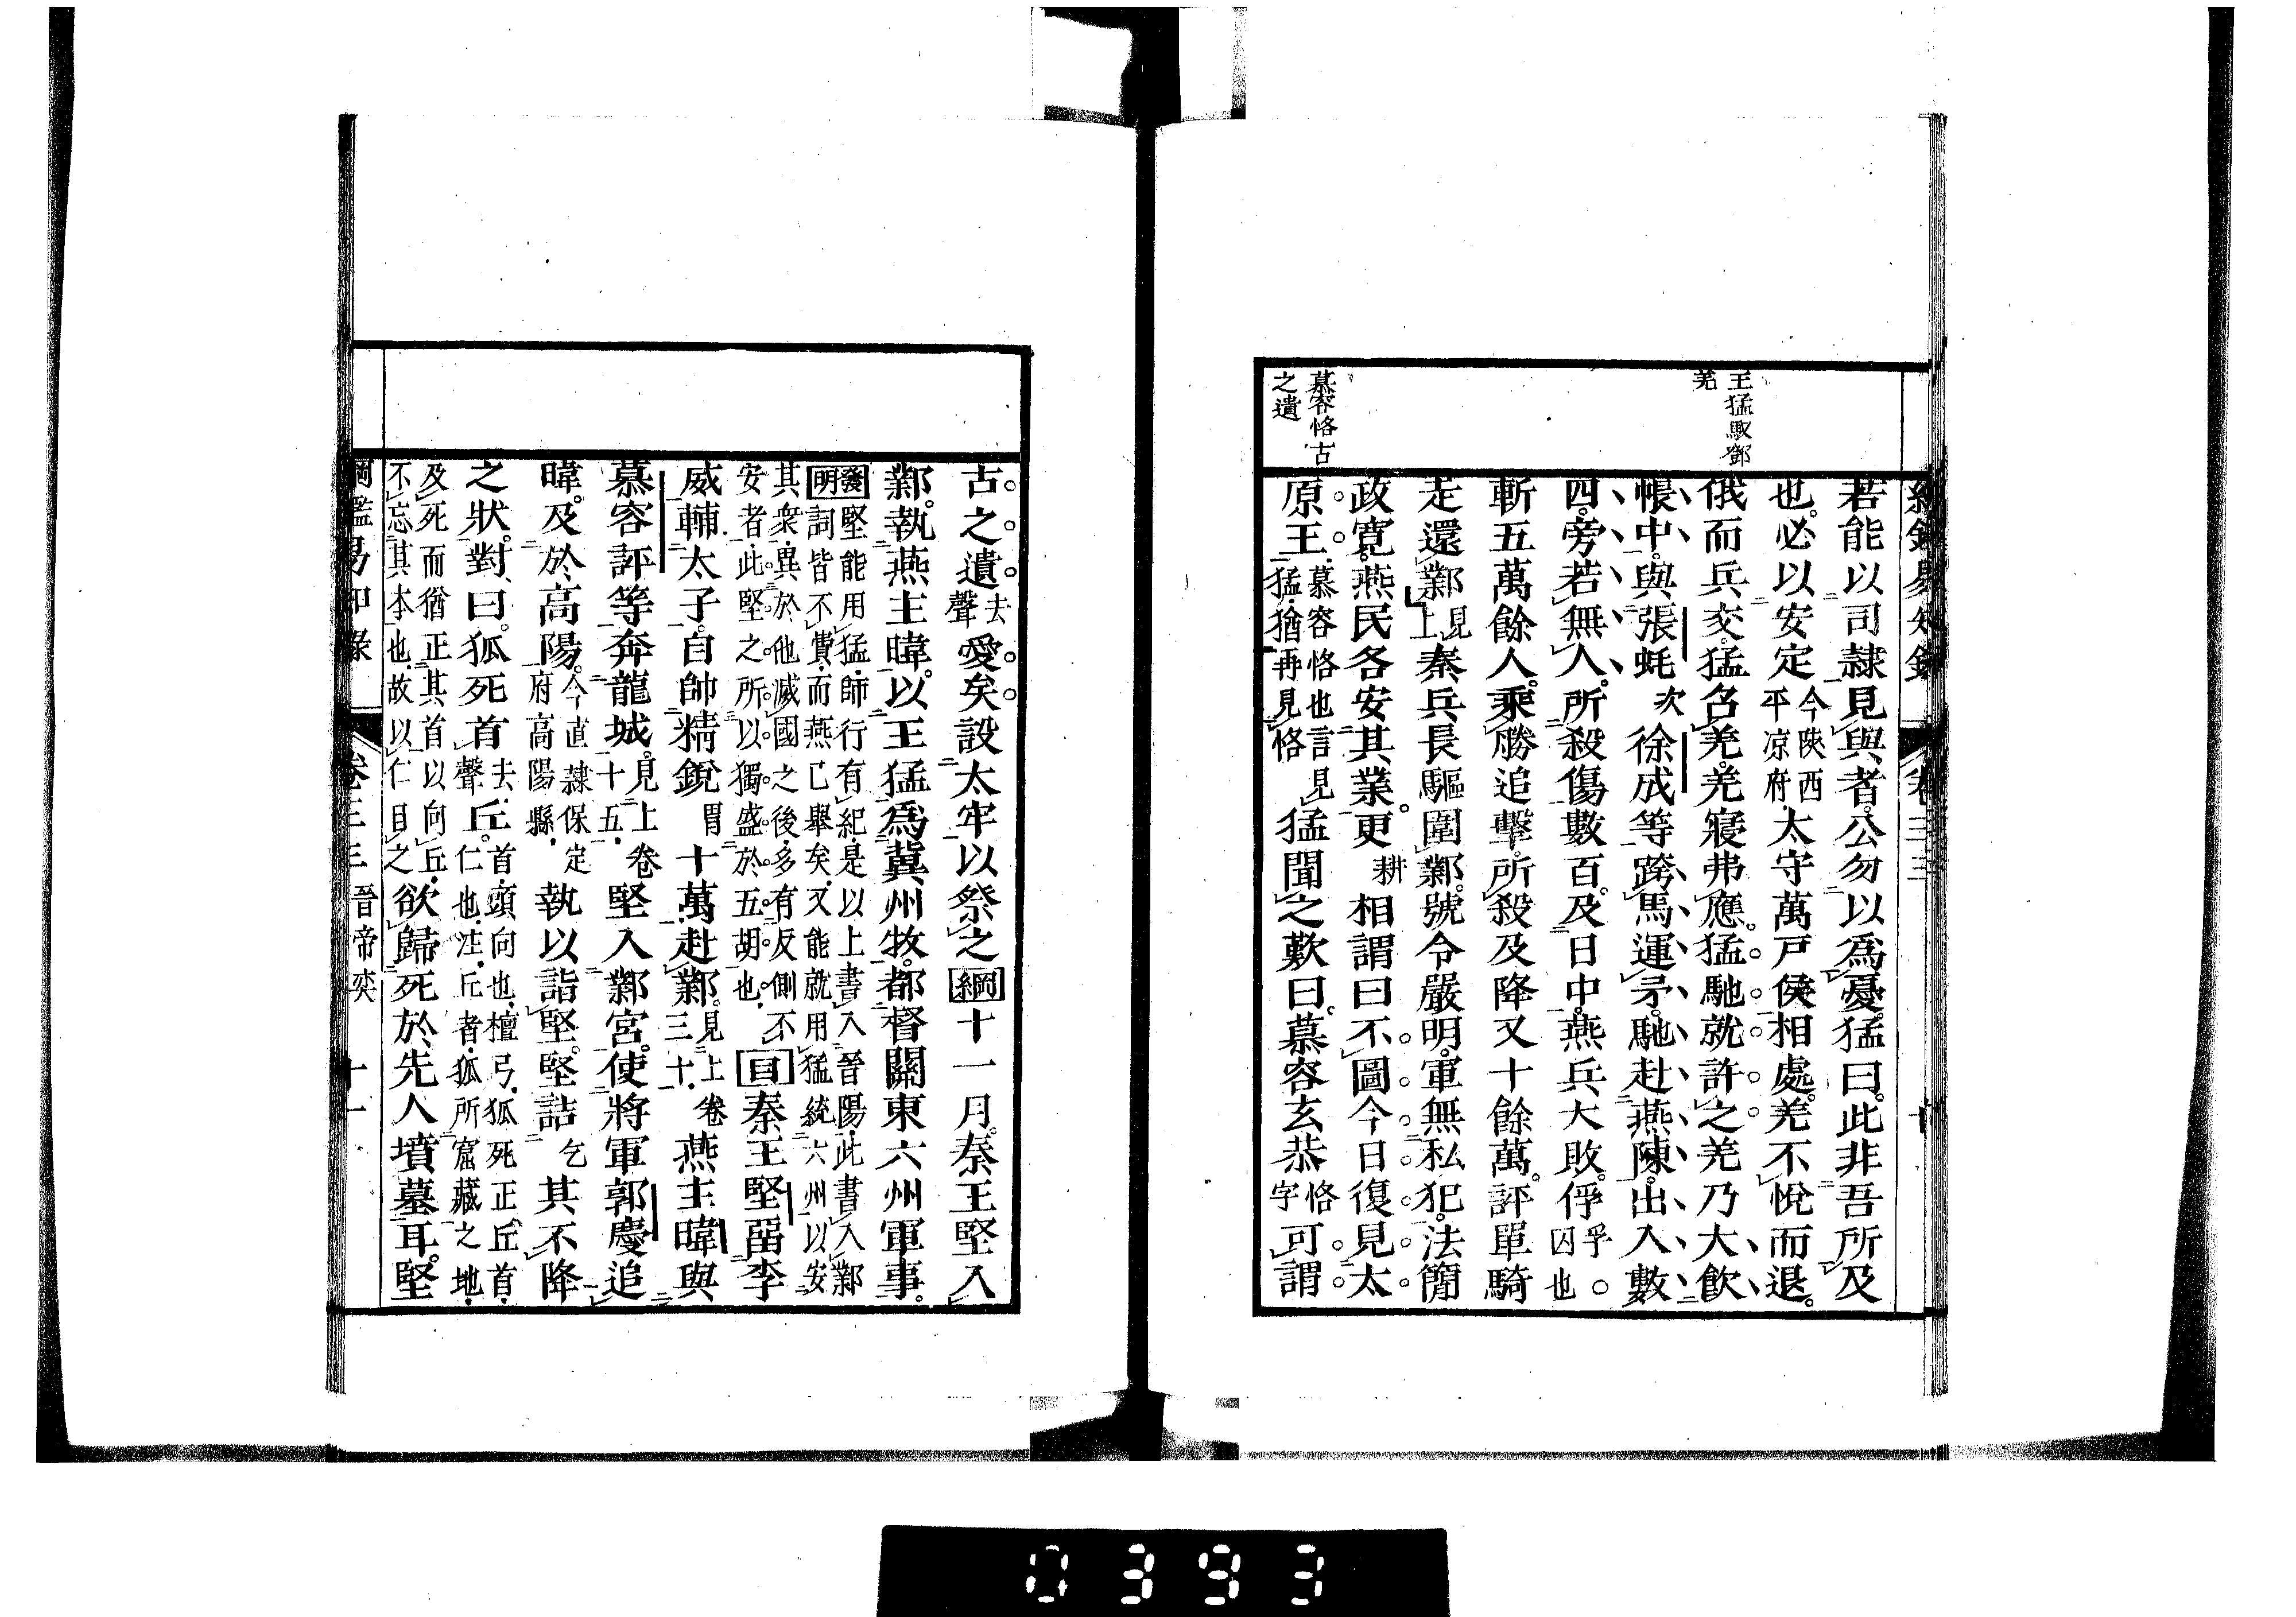 王猛馭鄧
羌
慕容恪古
之遺
若能以司隷見與者。公勿以爲憂。猛曰。此非吾所及
也。必以安定今陝西平凉府太守萬戸侯相處。羌不悅而退。
俄而兵交。猛召羌。羌寢弗應。猛馳就許之。羌乃大飮
帳中。與張蚝次徐成等跨馬運矛。馳赴燕陳。出入數
四。旁若無人。所殺傷數百。及日中。燕兵大敗。俘孚○囚也
斬五萬餘人。乘勝追擊。所殺及降又十餘萬。評單騎
走還鄴。見上秦兵長驅圍鄴。號令嚴明。軍無私犯。法簡
政寬。燕民各安其業。更耕相謂曰。不圖今日復見太
原王慕容恪也言見猛猶再見恪猛聞之歎曰。慕容玄恭恪字可謂
古之遺去聲愛矣。設太牢以祭之綱十一月。秦王堅入
鄴。執燕主暐。以王猛爲冀州牧。都督關東六州軍事。
發明堅能用猛。師行有紀。是以上書入晉陽。此書入鄴
詞皆不費。而燕已舉矣。又能就用猛統六州以安
其衆。異於他滅國之後。多有反側不
安者。此堅之所以獨盛於五胡也。目秦王堅留李
威輔太子。自帥精銳胃十萬赴鄴。見上卷三十。燕主暐與
慕容評等奔龍城。見上卷二十五。堅入鄴宮。使將軍郭慶追
暐。及於高陽。今直隷保定府高陽縣。執以詣堅。堅詰乞其不降
之狀。對曰。狐死首去聲丘。首。頭向也。檀弓。狐死正丘首。仁也。注。丘者。狐所窟藏之地。
及死而猶正其首以向丘。不忘其本也。故以仁目之欲歸死於先人墳墓耳。堅
綱鑑易知錄 卷三三 晉帝奕 十一